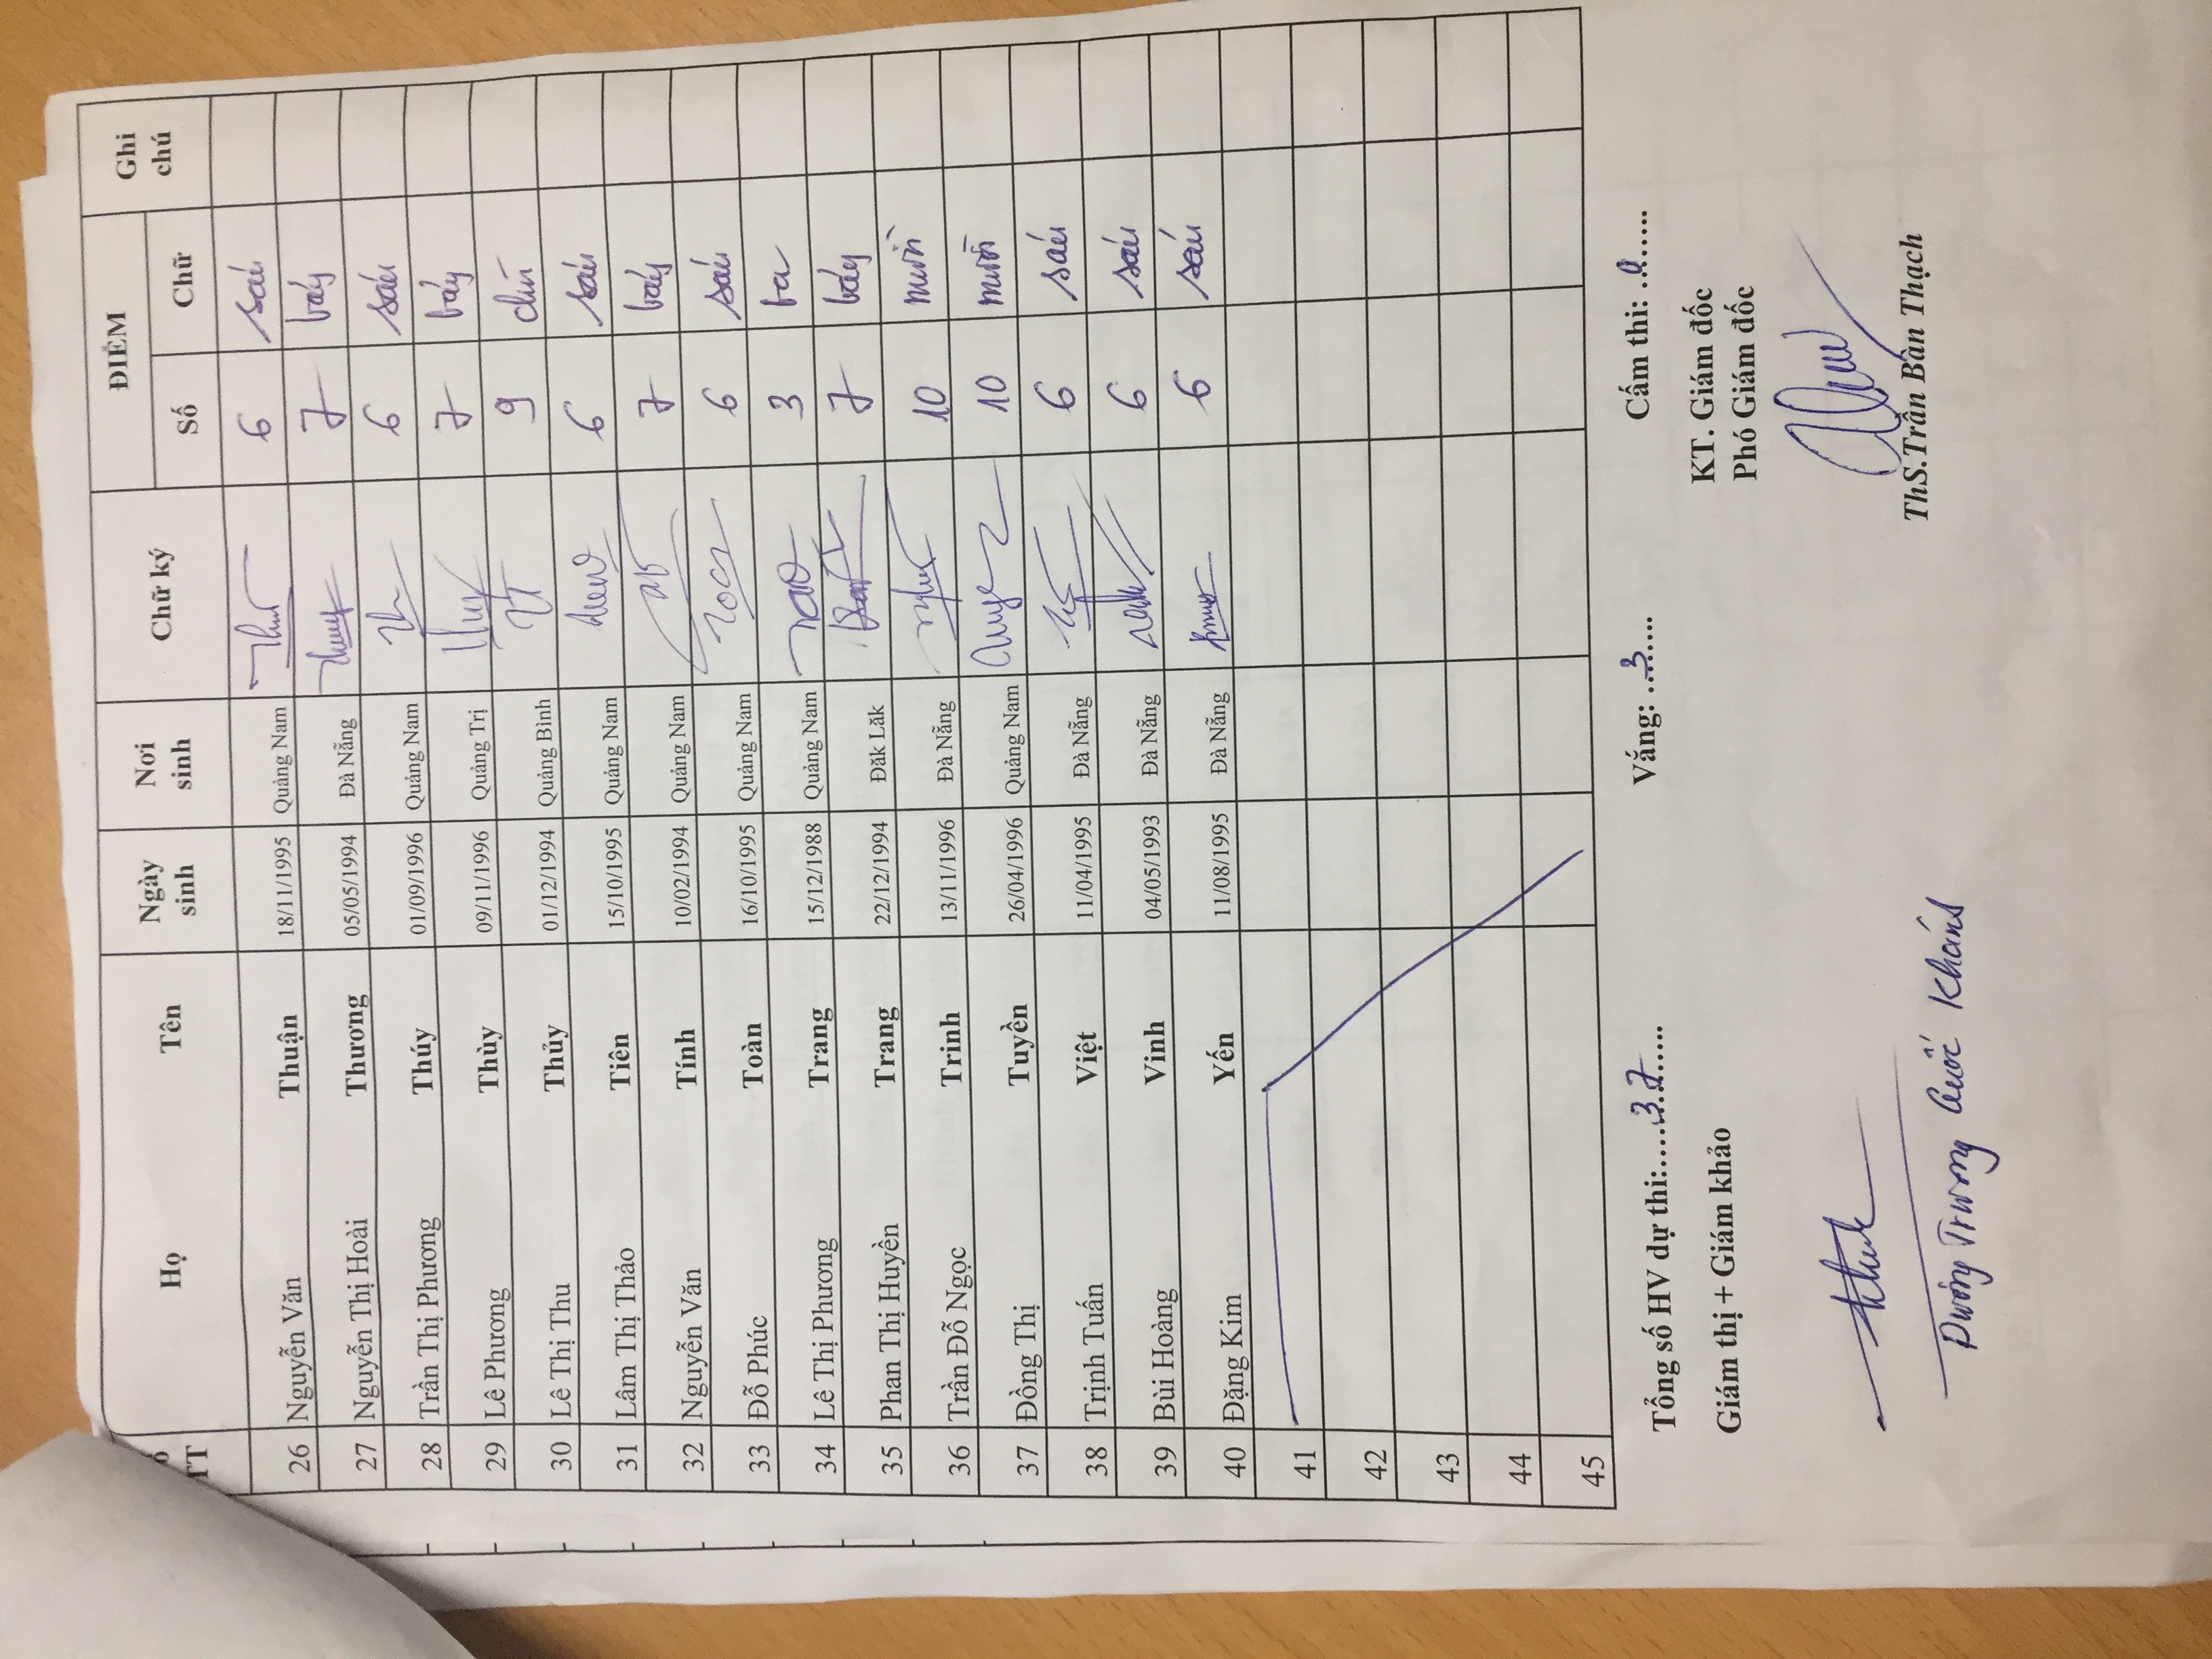 TT Họ Tên Ngày sinh Nơi sinh Chữ ký ĐIỂM Ghi chú
Số Chữ
26 Nguyễn Văn Thuận 18/11/1995 Quảng Nam 6 sáu
27 Nguyễn Thị Hoài Thương 05/05/1994 Đà Nẵng 7 bảy
28 Trần Thị Phương Thúy 01/09/1996 Quảng Nam 6 sáu
29 Lê Phương Thùy 09/11/1996 Quảng Trị 7 bảy
30 Lê Thị Thu Thủy 01/12/1994 Quảng Bình 9 chín
31 Lâm Thị Thảo Tiên 15/10/1995 Quảng Nam 6 sáu
32 Nguyễn Văn Tính 10/02/1994 Quảng Nam 7 bảy
33 Đỗ Phúc Toàn 16/10/1995 Quảng Nam 6 sáu
34 Lê Thị Phương Trang 15/12/1988 Quảng Nam 3 ba
35 Phan Thị Huyền Trang 22/12/1994 Đăk Lăk 7 bảy
36 Trần Đỗ Ngọc Trinh 13/11/1996 Đà Nẵng 10 mười
37 Đồng Thị Tuyền 26/04/1996 Quảng Nam 10 mười
38 Trịnh Tuấn Việt 11/04/1995 Đà Nẵng 6 sáu
39 Bùi Hoàng Vinh 04/05/1993 Đà Nẵng 6 sáu
40 Đặng Kim Yến 11/08/1995 Đà Nẵng 6 sáu
41
42
43
44
45
Tổng số HV dự thi:.....37..... Vắng: ...3..... Cấm thi: ..0.....
Giám thị + Giám khảo KT. Giám đốc
Phó Giám đốc
Dương Trương Quốc Khánh ThS.Trần Bàn Thạch